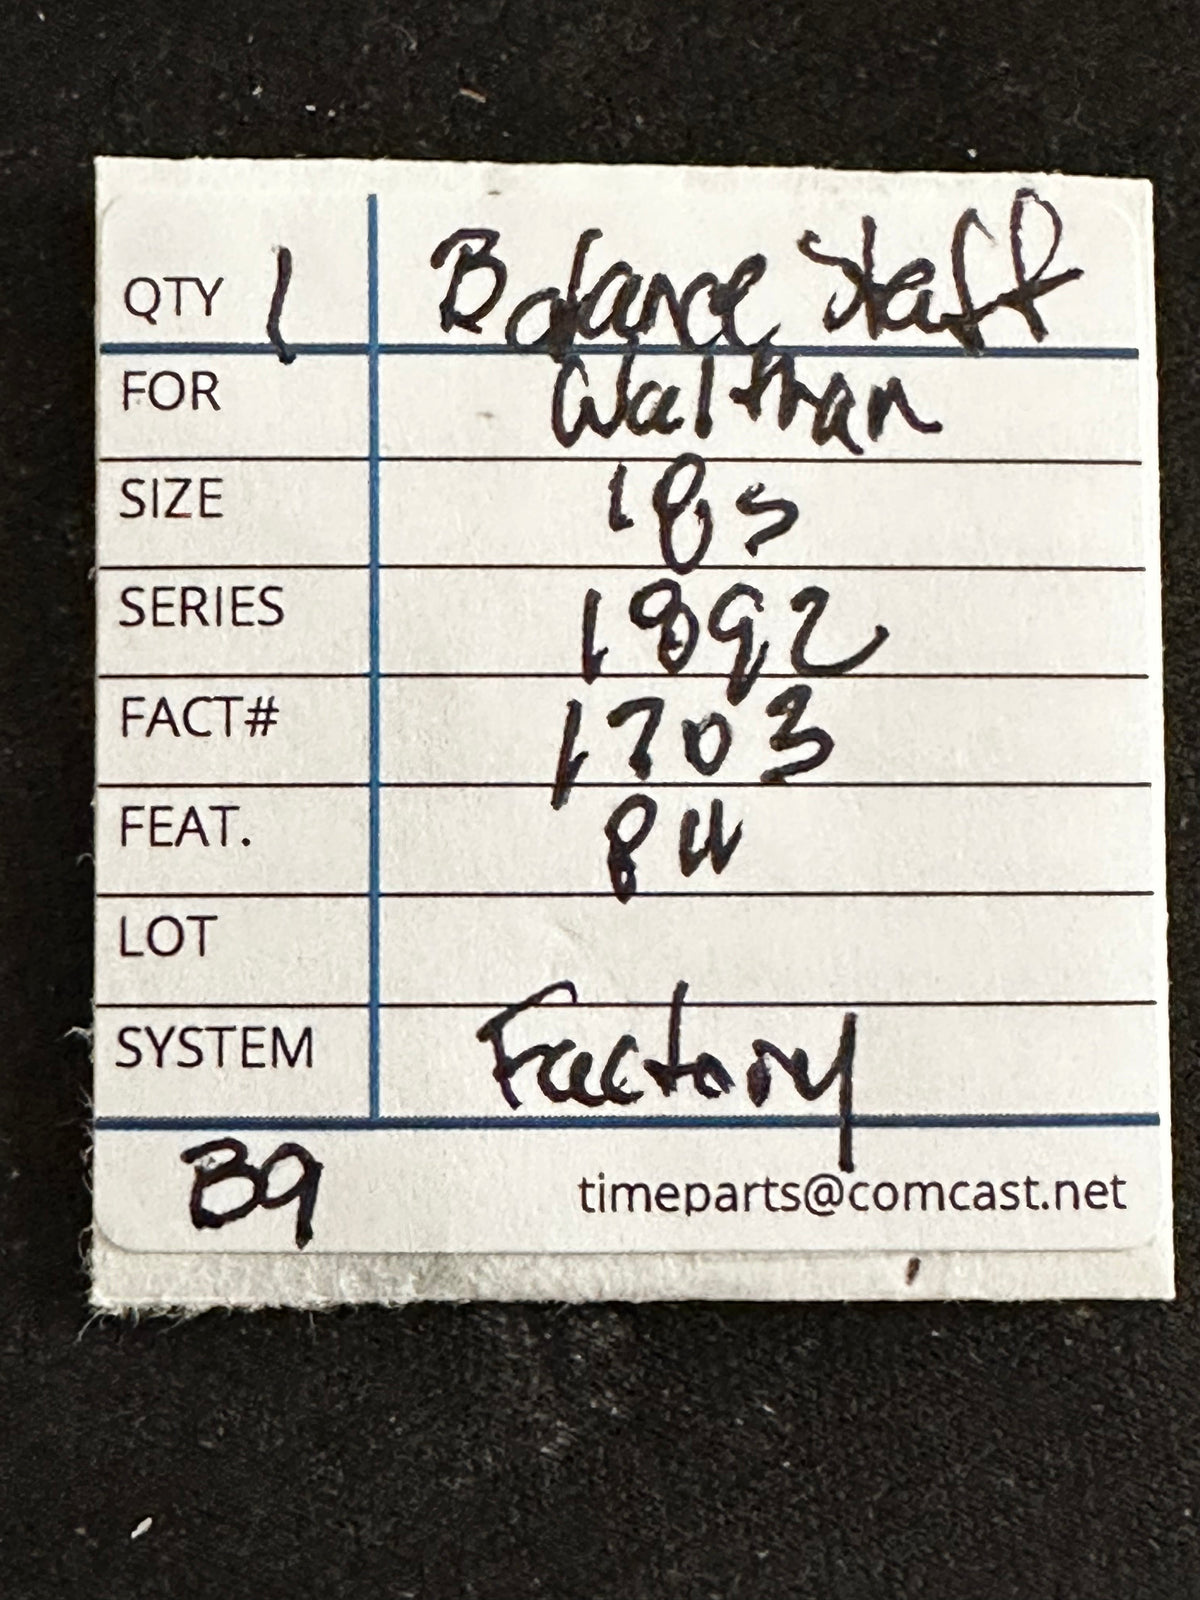 QTY 1 Balance Staff
FOR Waltham
SIZE 18s
SERIES 1892
FACT# 1703
FEAT.
LOT
SYSTEM Factory
B9 timeparts@comcast.net